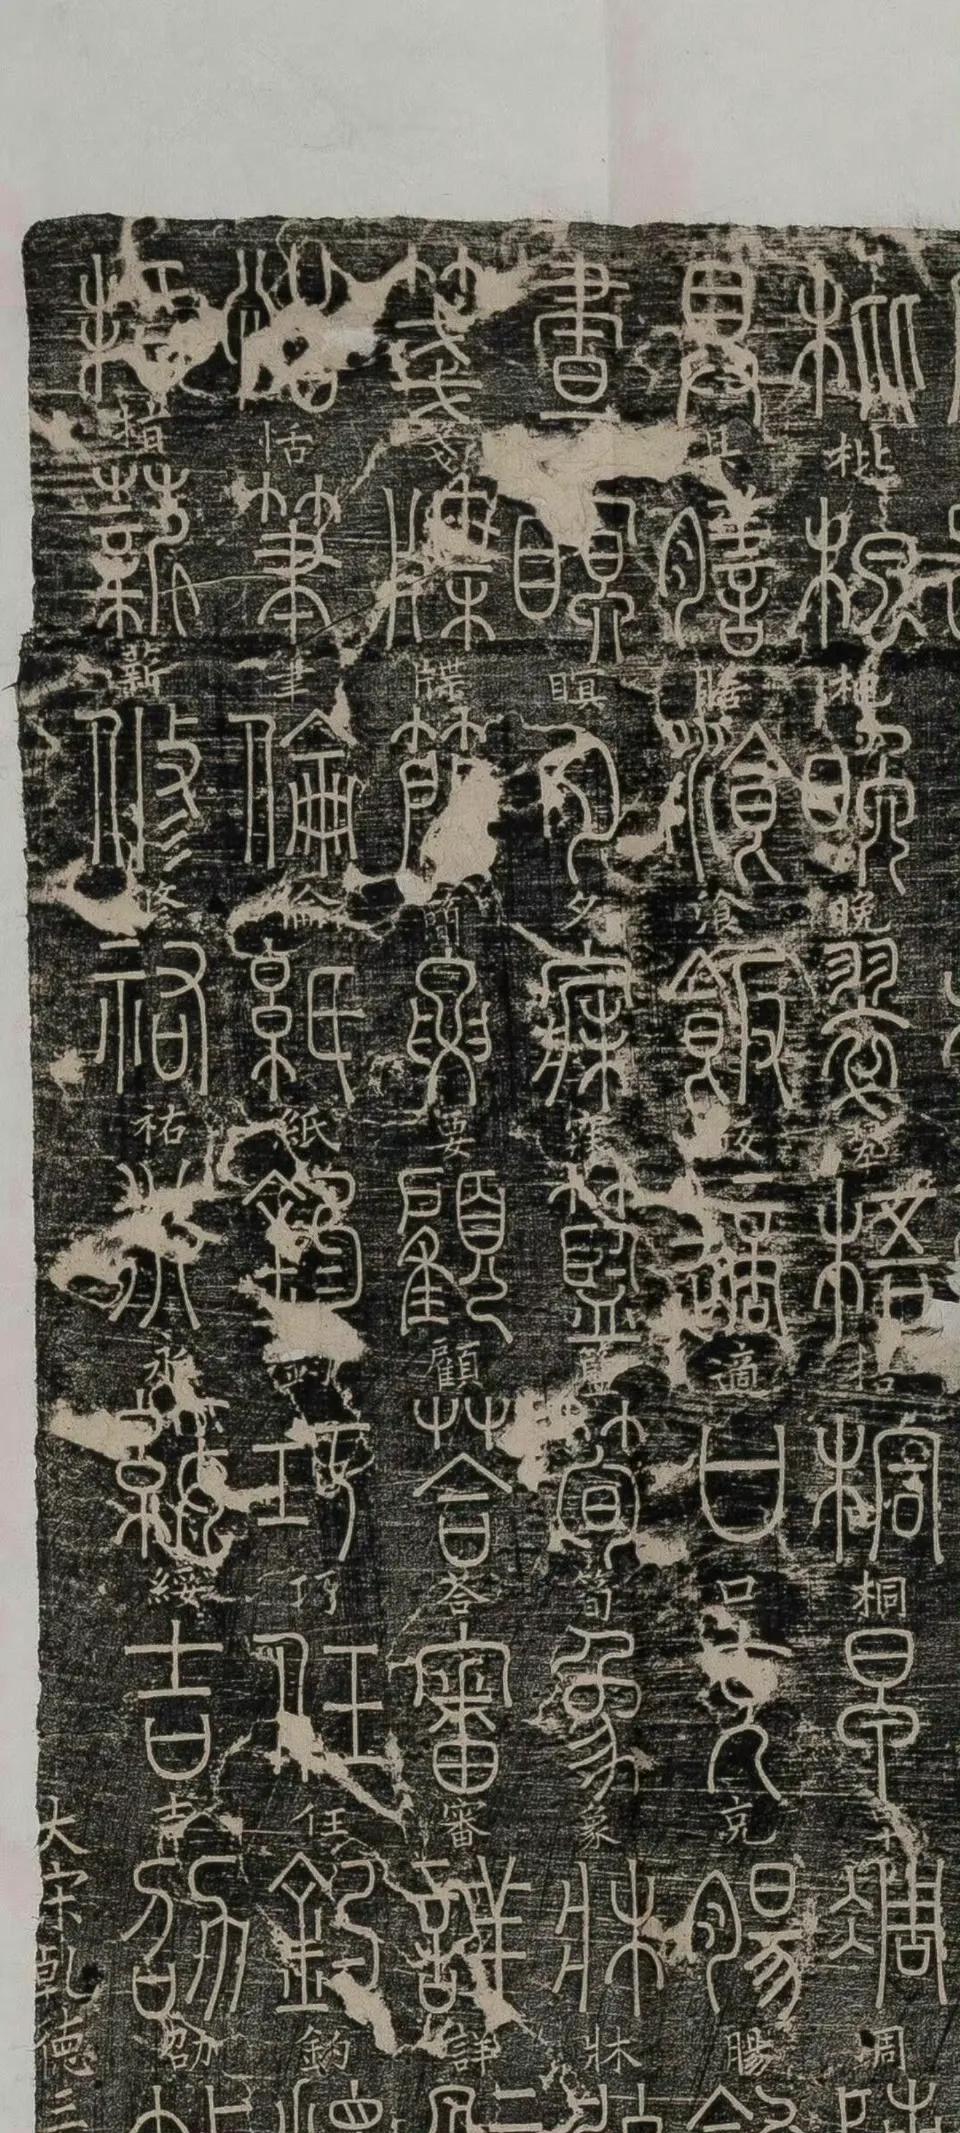 枇杷晚翠梧桐早凋
具膳飡飯適口充腸
晝瞑夕寐籃筍象牀
牋牒簡要顧答審詳
恬筆倫紙鈞巧任釣
指薪修祐永綏吉劭
大宋乾德三